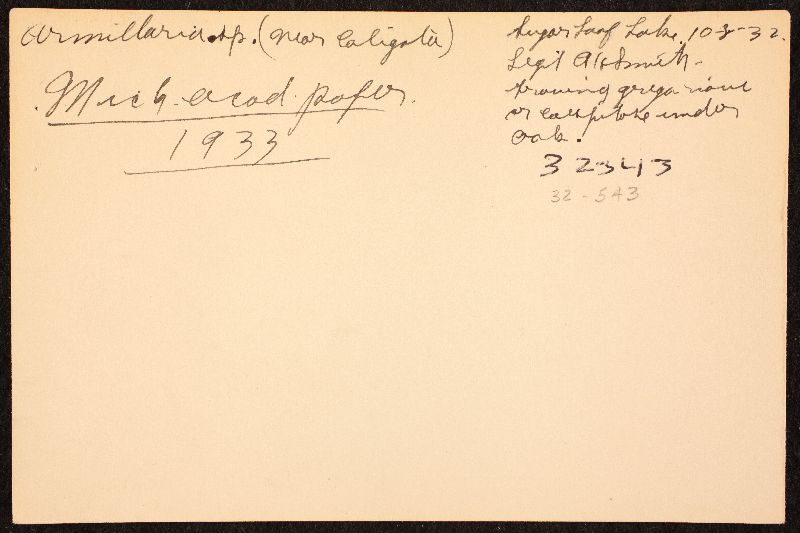 Armillaria sp. (near Caligata)
Mich. acad. paper.
1933
Sugar Loaf Lake. 10-8-32.
Legit AHSmith-
growing gregarious
or caespitose under
oak.
32543
32-543